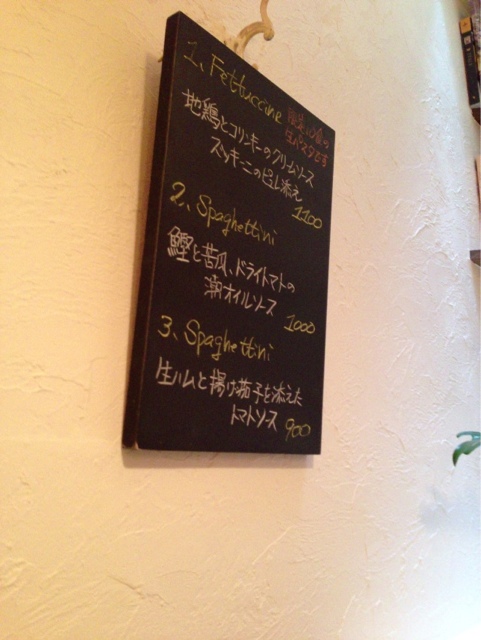 1. Fettuccine
限定10食の
生パスタです
地鶏とコリンキーのクリームソース
ズッキーニのピュレ添え
1100
2. Spaghettini
鰹と苦瓜、ドライトマトの
潮オイルソース
1000
3. Spaghettini
生ハムと揚げ茄子を添えた
トマトソース 900